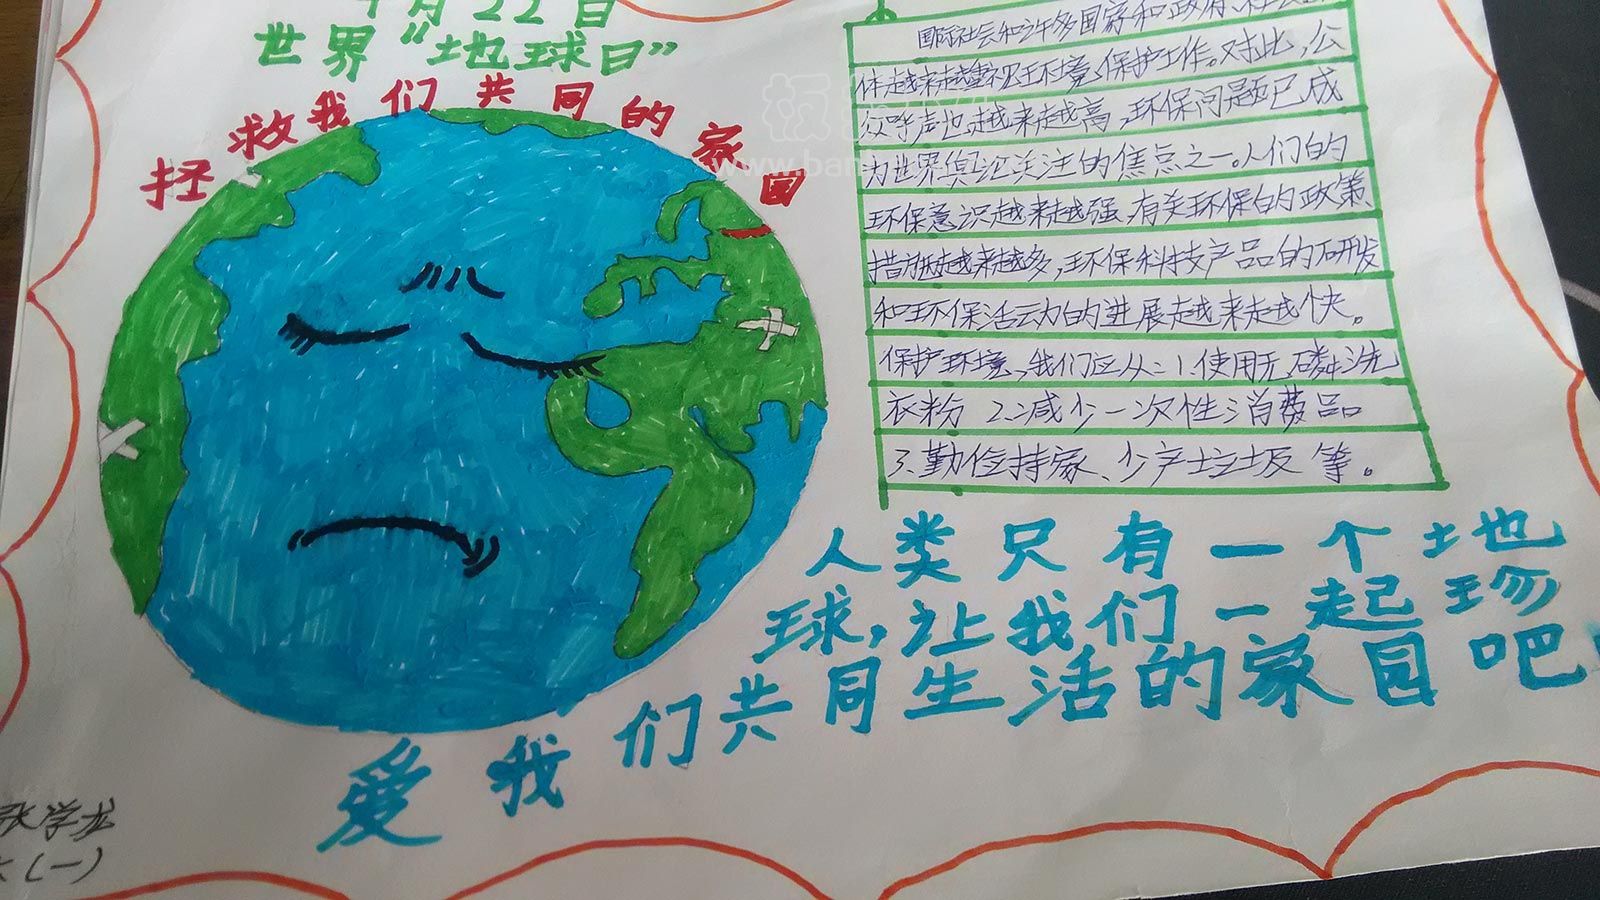 4月22日
世界“地球日”
拯救我们共同的家园
国际社会和许多国家和政府、社会团
体越来越重视环境保护工作。对此,公
众呼声也越来越高,环保问题已成
为世界舆论关注的焦点之一。人们的
环保意识越来越强,有关环保的政策、
措施越来越多,环保科技产品的研发
和环保活动的进展越来越快。
保护环境、我们应从:1.使用无磷洗
衣粉 2.减少一次性消费品
3.勤俭持家、少产垃圾等。
人类只有一个地
球,让我们一起珍
爱我们共同生活的家园吧
张学龙
(一)